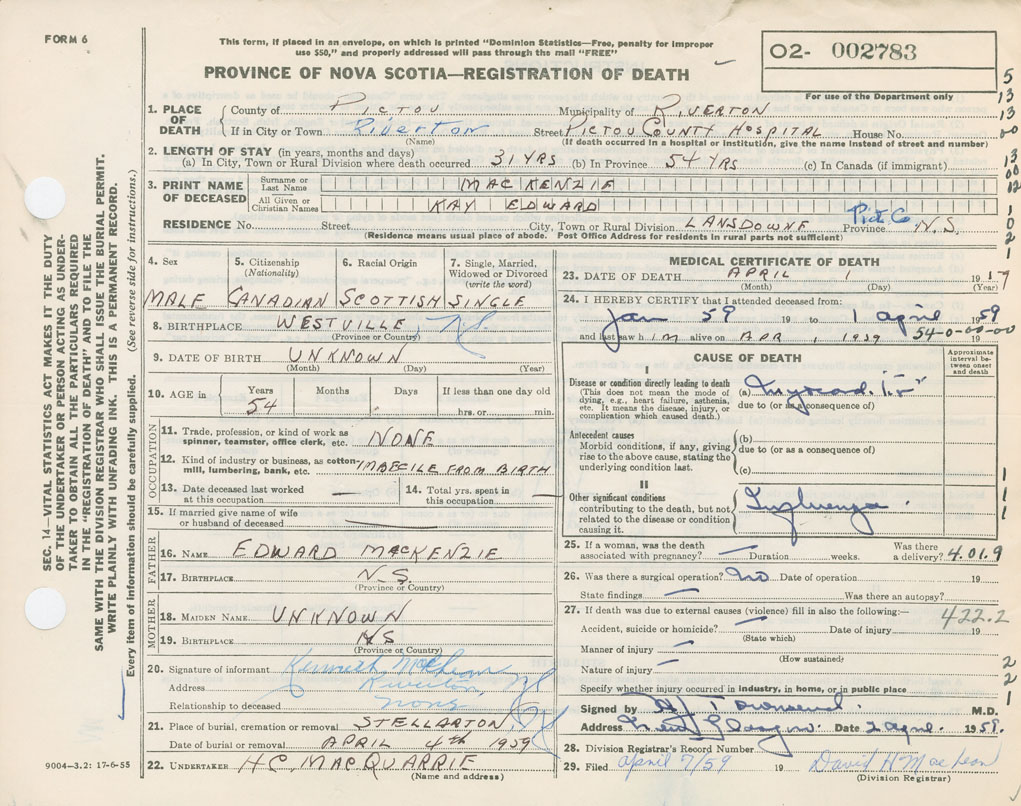 FORM 6
This form, if placed in an envelope, on which is printed "Dominion Statistics—Free, penalty for improper
use $50," and properly addressed will pass through the mail "FREE"
O2- 002783
For use of the Department only
PROVINCE OF NOVA SCOTIA—REGISTRATION OF DEATH
SEC. 14—VITAL STATISTICS ACT MAKES IT THE DUTY
OF THE UNDERTAKER OR PERSON ACTING AS UNDER-
TAKER TO OBTAIN ALL THE PARTICULARS REQUIRED
IN THE "REGISTRATION OF DEATH" AND TO FILE THE
SAME WITH THE DIVISION REGISTRAR WHO SHALL ISSUE THE BURIAL PERMIT.
WRITE PLAINLY WITH UNFADING INK. THIS IS A PERMANENT RECORD.
Every item of information should be carefully supplied. (See reverse side for instructions.)
1. PLACE OF DEATH County of PICTOU Municipality of RIVERTON
If in City or Town Riverton Street PICTOU COUNTY HOSPITAL House No.
(Name) (If death occurred in a hospital or institution, give the name instead of street and number)
2. LENGTH OF STAY (in years, months and days)
(a) In City, Town or Rural Division where death occurred 31 YRS (b) In Province 54 YRS (c) In Canada (if immigrant)
3. PRINT NAME OF DECEASED Surname or Last Name MACKENZIE
All Given or Christian Names KAY EDWARD
RESIDENCE No. Street City, Town or Rural Division LANSDOWNE Pict Co Province N.S.
(Residence means usual place of abode. Post Office Address for residents in rural parts not sufficient)
5
13
13
00
13
00
12
1
0
2
1
4. Sex 5. Citizenship (Nationality) 6. Racial Origin 7. Single, Married, Widowed or Divorced (write the word)
MALE CANADIAN SCOTTISH SINGLE
8. BIRTHPLACE WESTVILLE, N.S.
(Province or Country)
9. DATE OF BIRTH UNKNOWN
(Month) (Day) (Year)
10. AGE in Years Months Days If less than one day old
54 hrs. or min.
OCCUPATION
11. Trade, profession, or kind of work as spinner, teamster, office clerk, etc. NONE
12. Kind of industry or business, as cotton mill, lumbering, bank, etc. IMBECILE FROM BIRTH
13. Date deceased last worked at this occupation — 14. Total yrs. spent in this occupation —
15. If married give name of wife or husband of deceased —
FATHER
16. NAME EDWARD MACKENZIE
17. BIRTHPLACE N.S.
(Province or Country)
MOTHER
18. MAIDEN NAME UNKNOWN
19. BIRTHPLACE N.S
(Province or Country)
20. Signature of informant Kenneth MacLean
Address Riverton, NS
Relationship to deceased none
21. Place of burial, cremation or removal STELLARTON
Date of burial or removal APRIL 4th 1959
22. UNDERTAKER H.C. MACQUARRIE
(Name and address)
9004—3.2: 17-6-55
MEDICAL CERTIFICATE OF DEATH
23. DATE OF DEATH APRIL 1 19
(Month) (Day) (Year)
24. I HEREBY CERTIFY that I attended deceased from:
Jan 59 19 to 1 april 1959
and last saw him alive on APR 1, 1959 19
54-0-00-00
CAUSE OF DEATH
Approximate interval between onset and death
I
Disease or condition directly leading to death
(This does not mean the mode of dying, e.g., heart failure, asthenia, etc. It means the disease, injury, or complication which caused death.)
(a) Myocarditis
due to (or as a consequence of)
Antecedent causes
Morbid conditions, if any, giving rise to the above cause, stating the underlying condition last.
(b)
due to (or as a consequence of)
(c)
II
Other significant conditions
contributing to the death, but not related to the disease or condition causing it.
Influenza
1
1
1
25. If a woman, was the death associated with pregnancy? — Duration weeks. Was there a delivery? 4.01.9
26. Was there a surgical operation? no Date of operation 19
State findings — Was there an autopsy?
27. If death was due to external causes (violence) fill in also the following:— 422.2
Accident, suicide or homicide? — Date of injury 19
(State which)
Manner of injury —
(How sustained)
Nature of injury —
Specify whether injury occurred in industry, in home, or in public place
2
2
1
Signed by Townsend M.D.
Address New Glasgow. Date 2 april 1959.
28. Division Registrar's Record Number
29. Filed april 7/59 19 David H MacLean
(Division Registrar)